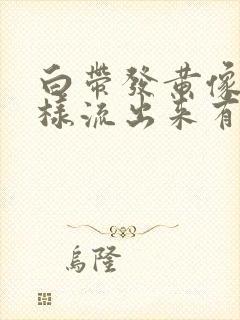 白帶發黃像
樣流出來有
烏隆